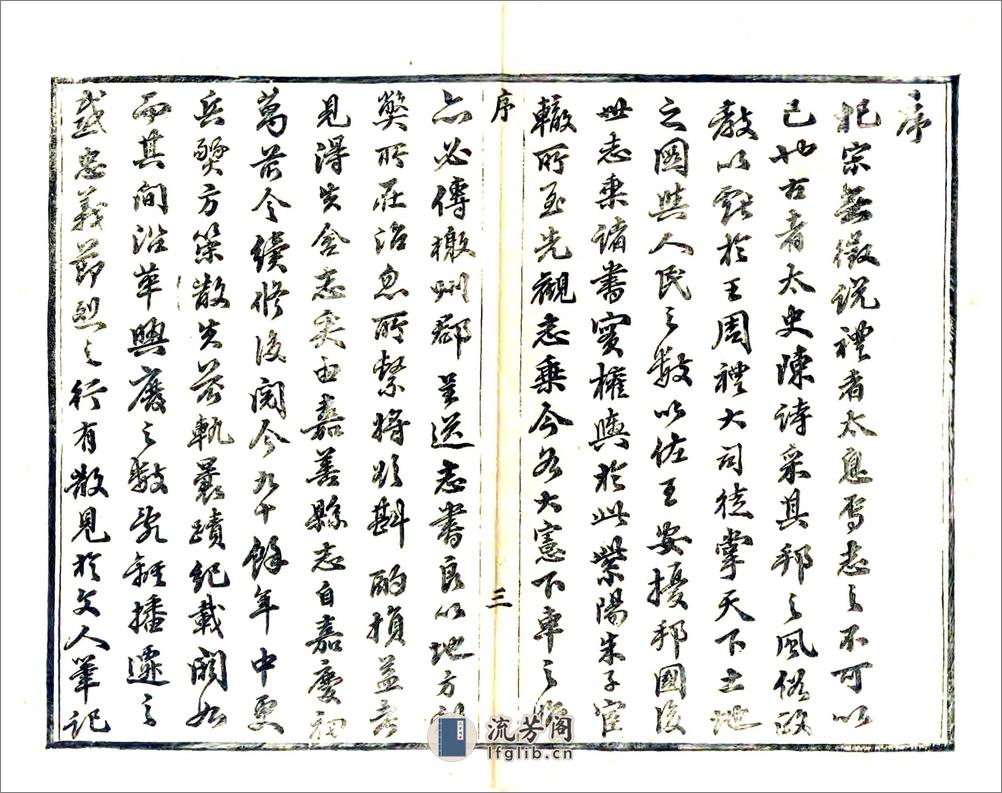 序
杞宋無徵說禮者太息焉志之不可以
已也古者太史陳詩采其邦之風俗政
教以獻於王周禮大司徒掌天下土地
之圖與人民之數以佐王安擾邦國後
世志乘諸書實權輿於此紫陽朱子官
轍所至先觀志乘今各大憲下車之
序
三
亦必傳檄州郡呈送志書良以地方
弊所在治忽所繫將欲斟酌損益
見得失舍志奚由嘉善縣志自嘉慶初
葛 令續修後閱今九十餘年中更
兵燹方策散失 軌曩蹟紀載闕如
而其間沿革興廢之數 種播遷之
或忠義節烈之行有散見於文人筆記
流芳阁
lfglib.cn